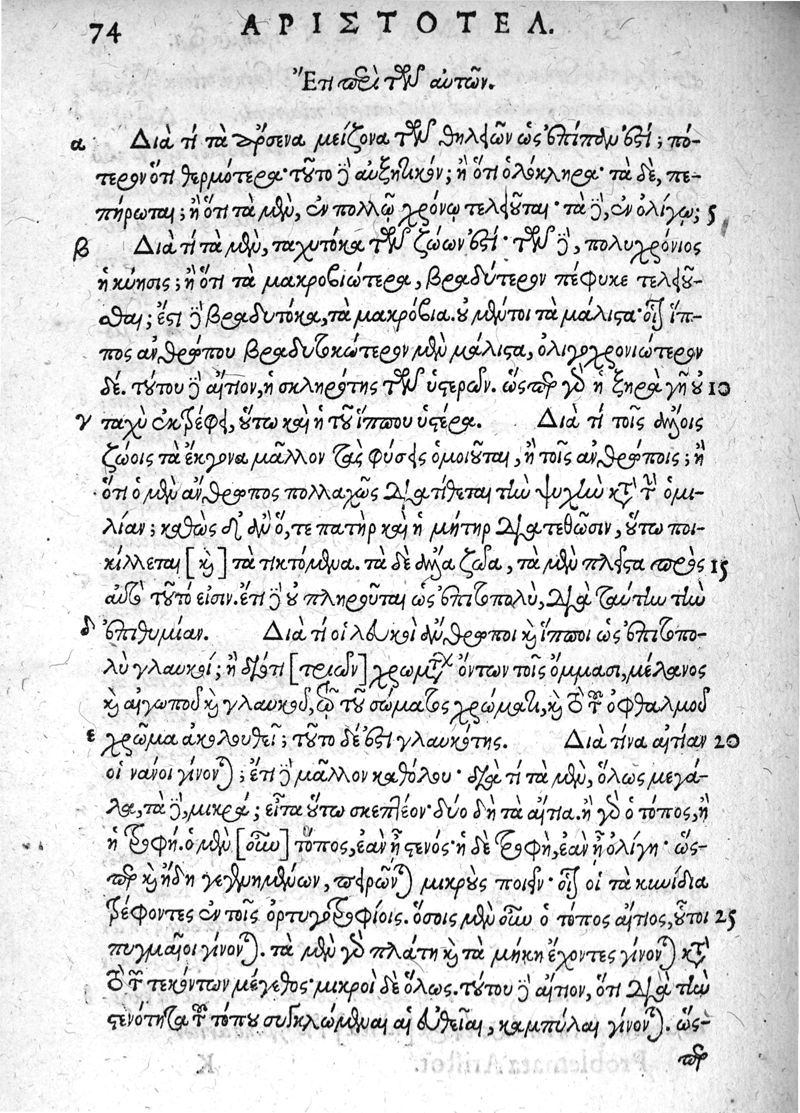 74 ΑΡΙΣΤΟΤΕΛ.
Ἔτι περὶ τῶν αὐτῶν.
α Διὰ τί τὰ ἄρσενα μείζονα τῶν θηλειῶν ὡς ἐπίπολυ ἐστί; πό-
τερον ὅτι θερμότερα· τοῦτο δὲ αὐξητικόν; ἢ ὅτι ὁλόκληρα· τὰ δὲ, πε-
πήρωται; ἢ ὅτι τὰ μὲν, ἐν πολλῷ χρόνῳ τελειοῦται· τὰ δὲ, ἐν ὀλίγῳ; 5
β Διὰ τί τὰ μὲν, ταχυτόκα τῶν ζώων ἐστί· τῶν δὲ, πολυχρόνιος
ἡ κύησις; ἢ ὅτι τὰ μακροβιώτερα, βραδύτερον πέφυκε τελειοῦ-
σθαι; ἔστι δὲ βραδυτόκα, τὰ μακρόβια. οὐ μέντοι τὰ μάλιστα· οἷον ἵπ-
πος ἀνθρώπου βραδυτοκώτερον μὲν μάλιστα, ὀλιγοχρονιώτερον
δέ. τούτου δὲ αἴτιον, ἡ σκληρότης τῶν ὑστερῶν. ὥσπερ γὰρ ἡ ξηρὰ γῆ οὐ 10
γ ταχὺ ἐκτρέφει, οὕτω καὶ ἡ τοῦ ἵππου ὑστέρα. Διὰ τί τοῖς ἄλλοις
ζώοις τὰ ἔκγονα μᾶλλον τὰς φύσεις ὁμοιοῦται, ἢ τοῖς ἀνθρώποις; ἢ
ὅτι ὁ μὲν ἄνθρωπος πολλαχῶς διατίθεται τὴν ψυχὴν κατὰ τὴν ὁμι-
λίαν; καθὼς δ' ἂν ὅ, τε πατὴρ καὶ ἡ μήτηρ διατεθῶσιν, οὕτω ποι-
κίλλεται [καὶ] τὰ τικτόμενα. τὰ δὲ ἄλλα ζῶα, τὰ μὲν πλεῖστα πρὸς 15
αὐτὸ τοῦτό εἰσιν. ἔτι δὲ οὐ πληροῦται ὡς ἐπιτοπολὺ, διὰ ταύτην τὴν
δ ἐπιθυμίαν. Διὰ τί οἱ λευκοὶ ἄνθρωποι καὶ ἵπποι ὡς ἐπιτοπο-
λὺ γλαυκοί; ἢ διότι [τριῶν] χρωμάτων ὄντων τοῖς ὄμμασι, μέλανος
καὶ αἰγωποῦ καὶ γλαυκοῦ, τῷ τοῦ σώματος χρώματι, καὶ τὸ τοῦ ὀφθαλμοῦ
ε χρῶμα ἀκολουθεῖ; τοῦτο δέ ἐστι γλαυκότης. Διὰ τίνα αἰτίαν 20
οἱ νάνοι γίνονται; ἔτι δὲ μᾶλλον καθόλου· διὰ τί τὰ μὲν, ὅλως μεγά-
λα, τὰ δὲ, μικρά; εἶτα οὕτω σκεπτέον· δύο δὴ τὰ αἴτια. ἢ γὰρ ὁ τόπος, ἢ
ἡ τροφή. ὁ μὲν [οὖν] τόπος, ἐὰν ᾖ στενός· ἡ δὲ τροφὴ, ἐὰν ᾖ ὀλίγη· ὥς-
περ καὶ ἤδη γεγενημένων, πειρῶνται μικροὺς ποιεῖν· οἷον οἱ τὰ κυνίδια
τρέφοντες ἐν τοῖς ὀρτυγοτροφίοις. ὅσοις μὲν οὖν ὁ τόπος αἴτιος, οὗτοι 25
πυγμαῖοι γίνονται. τὰ μὲν γὰρ πλάτη καὶ τὰ μήκη ἔχοντες γίνονται κατὰ
τὸ τῶν τεκόντων μέγεθος· μικροὶ δὲ ὅλως. τούτου δὲ αἴτιον, ὅτι διὰ τὴν
στενότητα τοῦ τόπου συγκλώμεναι αἱ εὐθεῖαι, καμπύλαι γίνονται. ὥς-
περ